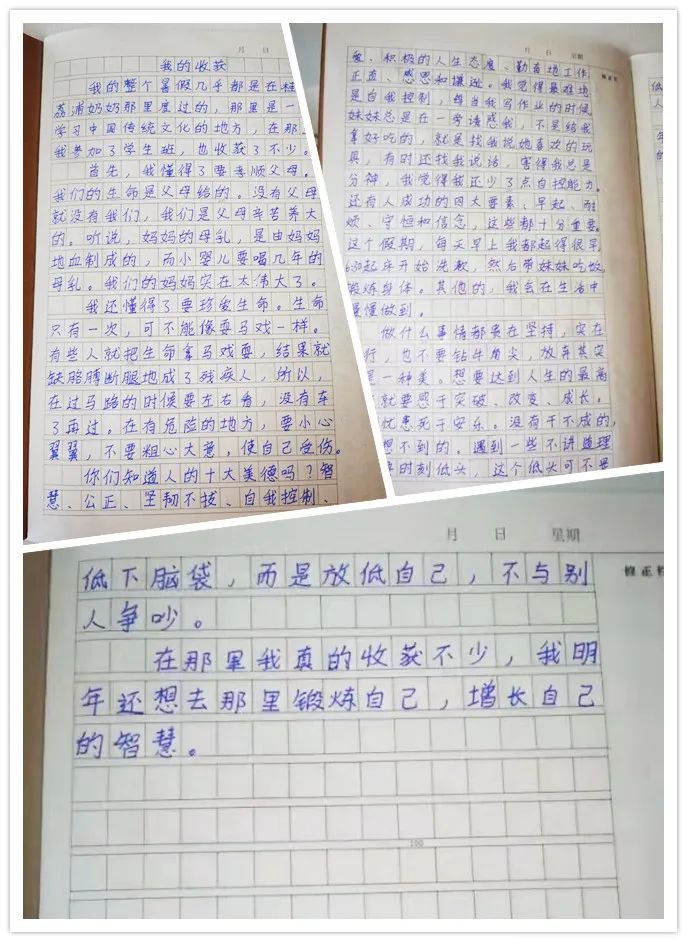 月 日
我的收获
我的整个暑假几乎都是在桂
荔浦奶奶那里度过的，那里是一
学习中国传统文化的地方，在那
我参加了学生班，也收获了不少。
首先，我懂得了要孝顺父母。
我们的生命是父母给的。没有父母
就没有我们，我们是父母辛苦养大
的。听说，妈妈的母乳，是由妈妈
地血制成的，而小婴儿要喝几年的
母乳。我们的妈妈实在太伟大了。
我还懂得了要珍爱生命。生命
只有一次，可不能像耍马戏一样。
有些人就把生命拿马戏耍，结果就
缺胳膊断腿地成了残疾人，所以，
在过马路的时候要左右看，没有车
了再过。在有危险的地方，要小心
翼翼，不要粗心大意，使自己受伤。
你们知道人的十大美德吗？智
慧、公正、坚韧不拔、自我控制、
月 日 星期
爱、积极的人生态度、勤奋地工作
正直、感恩和谦逊。我觉得最难地
是自我控制，每当我写作业的时候
妹妹总是在一旁诱惑我，不是给我
拿好吃的，就是找我说她喜欢的玩
具，有时还找我说话，害得我总是
分神，我觉得我还少了点自控能力。
还有人成功的四大要素、早起、耐
烦、守恒和信念，这些都十分重要。
这个假期，每天早上我都起得很早
6:30起床开始洗漱，然后带妹妹吃饭
锻炼身体。其他的，我会在生活中
慢慢做到。
做什么事情都贵在坚持，实在
行，也不要钻牛角尖，放弃其实
是一种美。想要达到人生的最高
就要感于突破、改变、成长，
忧患死于安乐。没有干不成的，
想不到的。遇到一些不讲道理
要时刻低头，这个低头可不是
月 日 星期
修正栏
低下脑袋，而是放低自己，不与别
人争吵。
在那里我真的收获不少，我明
年还想去那里锻炼自己，增长自己
的智慧。
100